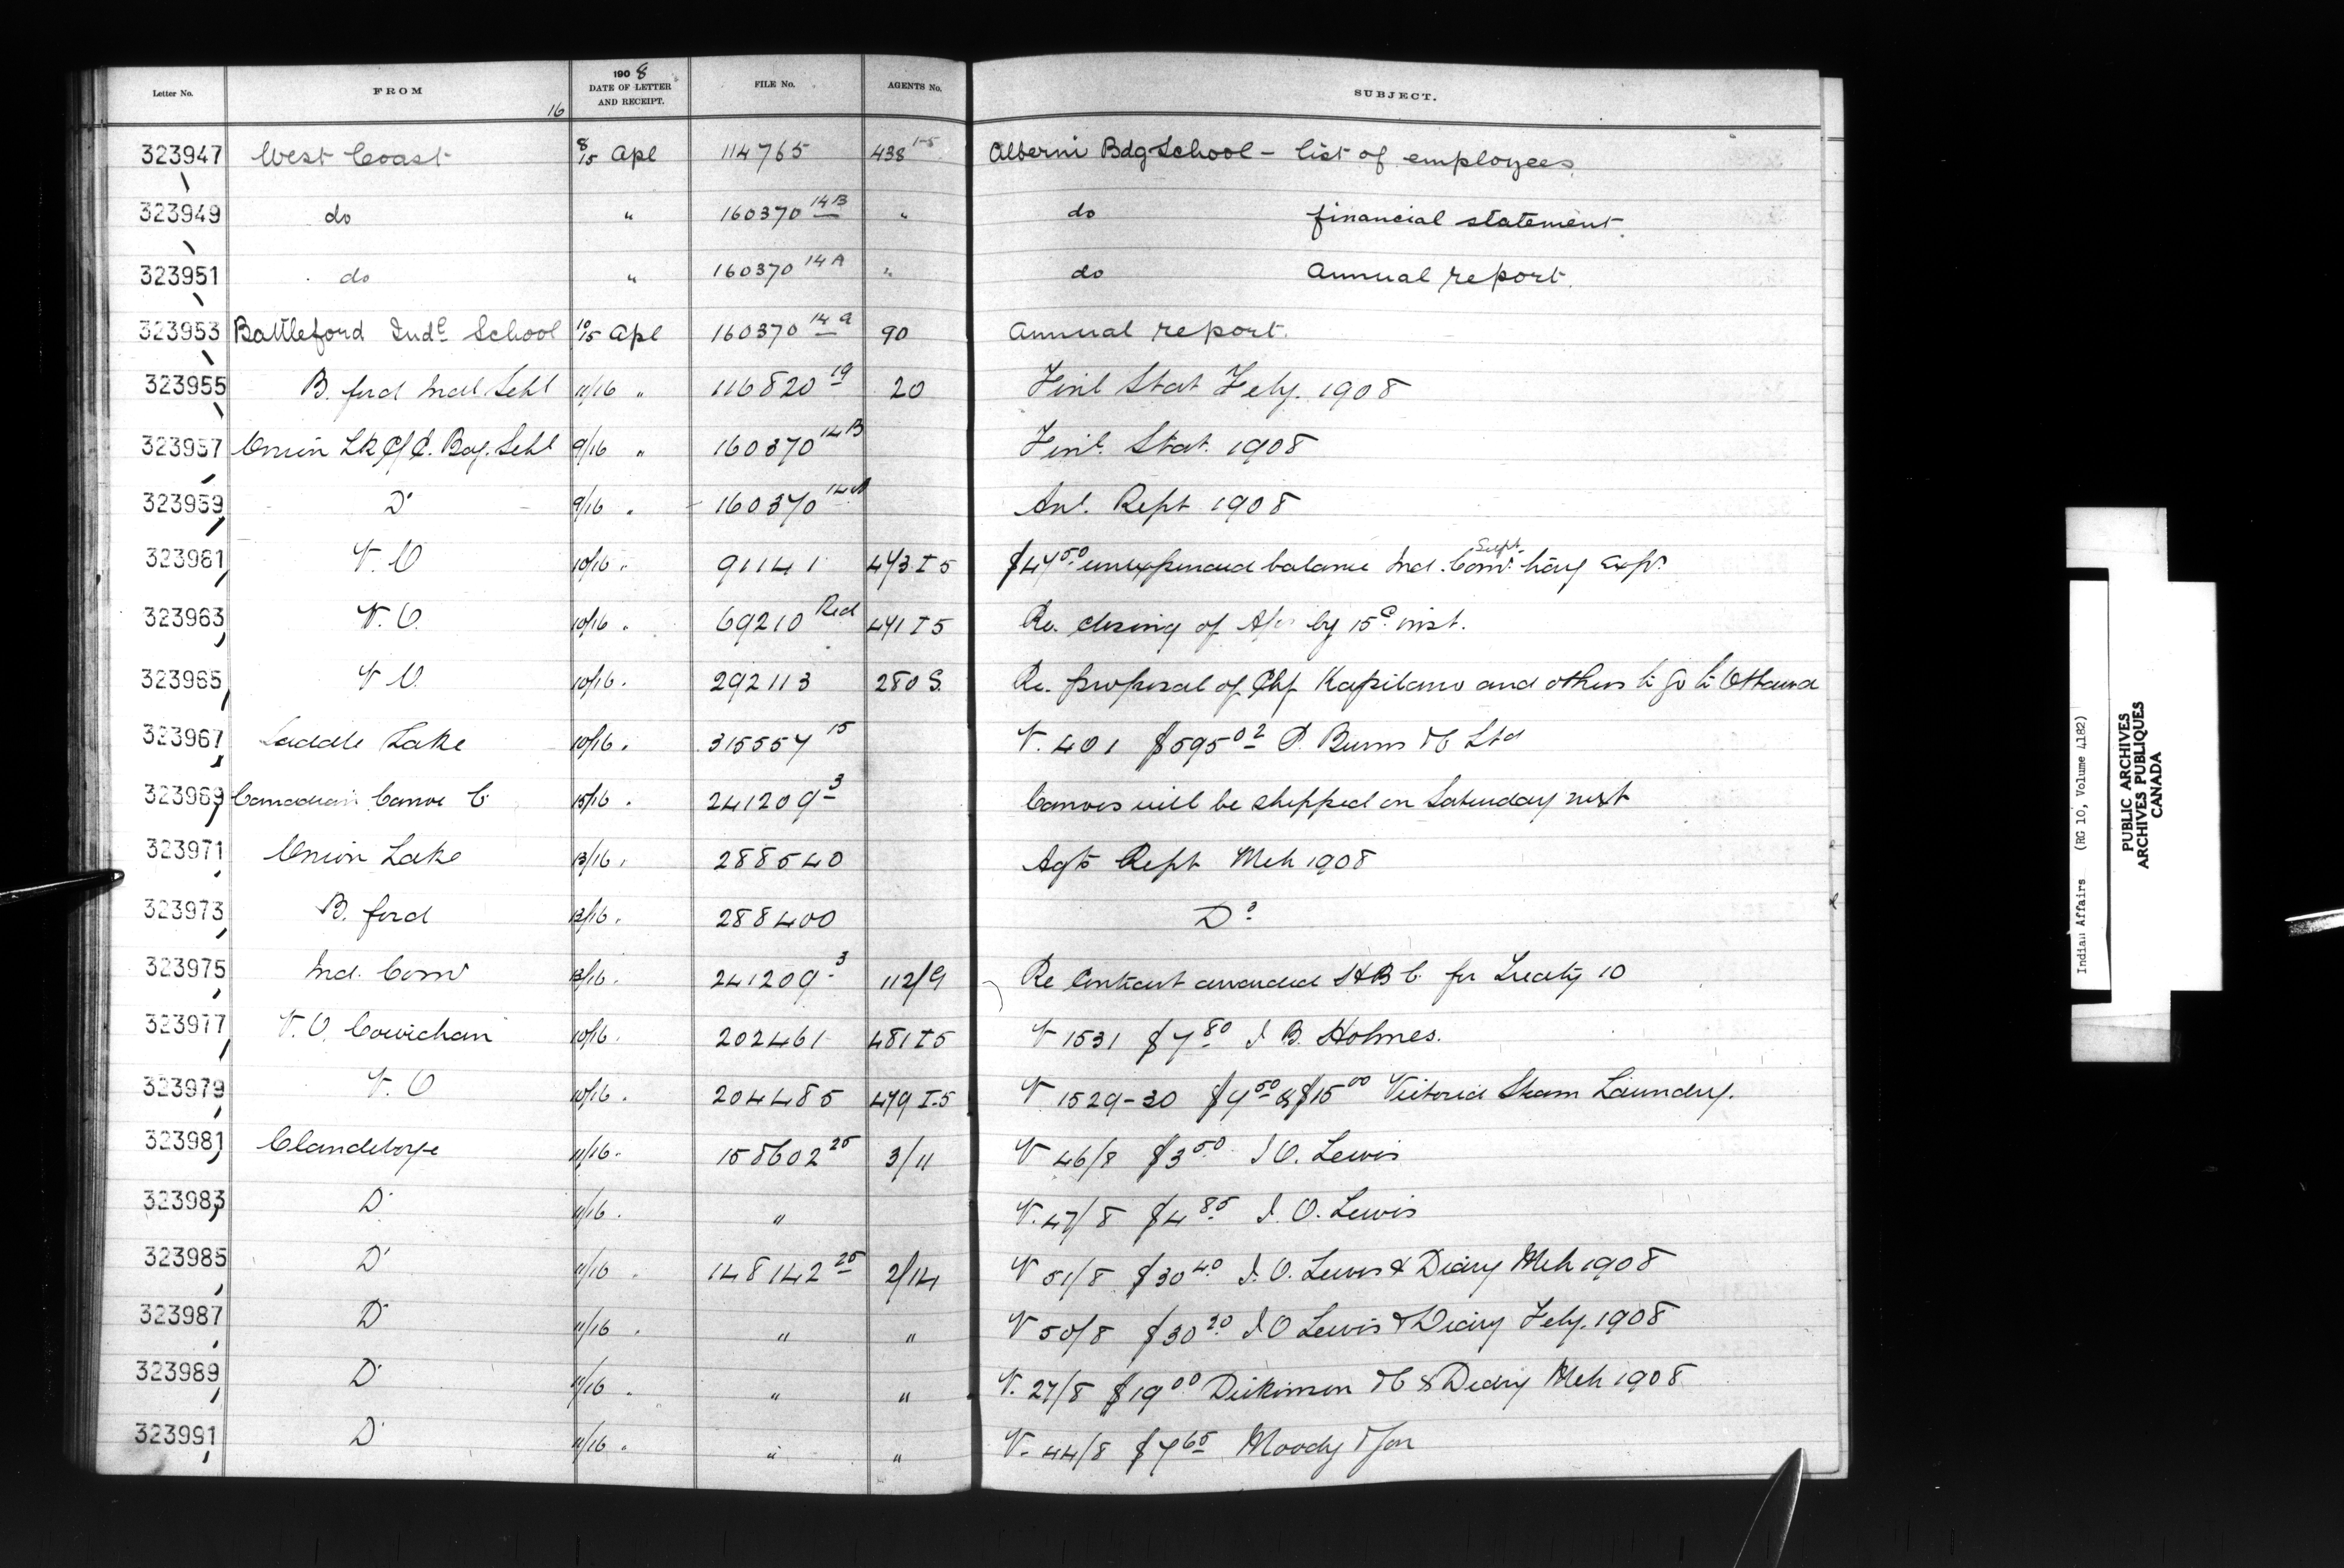 Letter No. FROM 16 1908 DATE OF LETTER AND RECEIPT. FILE No. AGENTS No. SUBJECT.
323947 West Coast 8/15 Apl 114765 438 1-5 Alberni Bdg School – list of employees.
323949 do " 160370 14B " do financial statement.
323951 do " 160370 14A " do Annual report.
323953 Battleford Indl School 10/15 Apl 160370 14a 90 Annual report.
323955 B. ford Indl Schl 11/16 " 116820 19 20 Finl Stat Feby. 1908
323957 Onion Lk C/E. Bdg. Schl 9/16 " 160370 14B Finl. Stat. 1908
323959 Do 9/16 " 160370 14A Anl. Rept 1908
323961 V. O 10/16 " 91141 473 I 5 $47.50 unexpended balance Ind. Supt. trav'g Exps
323963 V. O. 10/16 " 69210 Red 471 I 5 Re. closing of A/cs by 15th inst.
323965 V O. 10/16 " 292113 280 S. Re. proposal of Chf Kapilano and others to go to Ottawa
323967 Saddle Lake 10/16 " 315557 15 V. 401 $595.02 P. Burns & Co Ltd
323969 Canadian Canoe Co 15/16 " 241209 3 Canoes will be shipped on Saturday next
323971 Onion Lake 13/16 " 288540 Agts Rept Mch 1908
323973 B. ford 13/16 " 288400 Do
323975 Ind. Comr 13/16 " 241209 3 112/9 Re Contract awarded H B C. for Treaty 10
323977 V. O. Cowichan 10/16 " 202461 481 I 5 V 1531 $7.80 J B. Holmes.
323979 V. O 10/16 " 204485 479 I-5 V 1529-30 $7.50 & $15.00 Victoria Steam Laundry.
323981 Clandeboye 11/16 " 158602 25 3/11 V 46/8 $3.50 J O. Lewis
323983 Do 11/16 " " V. 47/8 $4.85 J. O. Lewis
323985 Do 11/16 " 148142 25 2/14 V 51/8 $30.40 J. O. Lewis & Diary Mch 1908
323987 Do 11/16 " " " V 50/8 $30.20 J O Lewis & Diary Feby. 1908
323989 Do 11/16 " " " V. 27/8 $19.00 Dickinson & Co & Diary Mch 1908
323991 Do 11/16 " " " V. 44/8 $7.65 Moody & Son
Indian Affairs (RG 10, Volume 4182)
PUBLIC ARCHIVES
ARCHIVES PUBLIQUES
CANADA